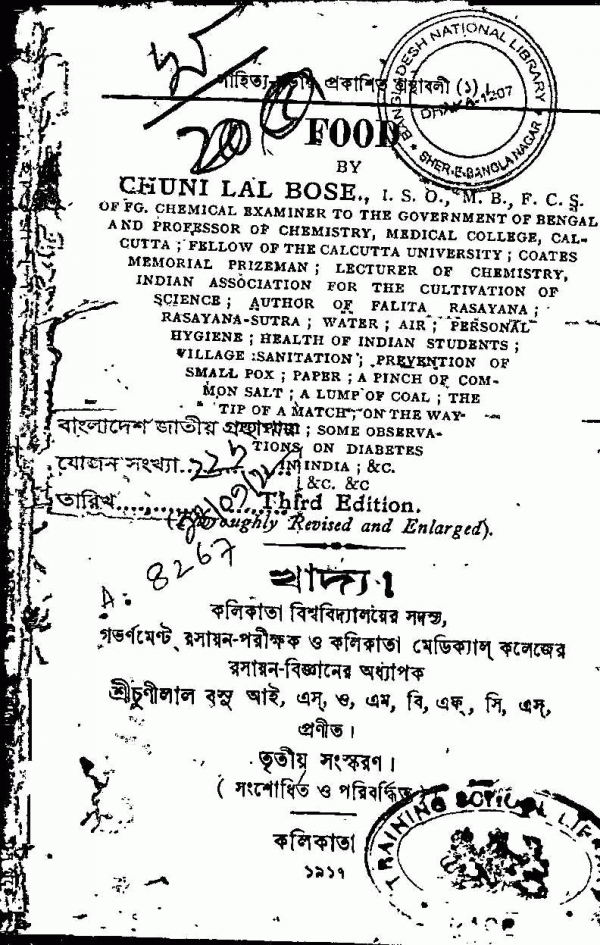 সাহিত্য-সভার প্রকাশিত গ্রন্থাবলী (১)
BANGLADESH NATIONAL LIBRARY
DHAKA-1207
SHER-E-BANGLA NAGAR
FOOD
BY
CHUNI LAL BOSE., I. S. O., M. B., F. C. S.
OFFG. CHEMICAL EXAMINER TO THE GOVERNMENT OF BENGAL
AND PROFESSOR OF CHEMISTRY, MEDICAL COLLEGE, CAL-
CUTTA ; FELLOW OF THE CALCUTTA UNIVERSITY ; COATES
MEMORIAL PRIZEMAN ; LECTURER OF CHEMISTRY,
INDIAN ASSOCIATION FOR THE CULTIVATION OF
SCIENCE ; AUTHOR OF FALITA RASAYANA ;
RASAYANA-SUTRA ; WATER ; AIR ; PERSONAL
HYGIENE ; HEALTH OF INDIAN STUDENTS ;
VILLAGE SANITATION ; PREVENTION OF
SMALL POX ; PAPER ; A PINCH OF COM-
MON SALT ; A LUMP OF COAL ; THE
TIP OF A MATCH ; ON THE WAY-
SOME OBSERVA-
TIONS ON DIABETES
IN INDIA ; &C.
&C. &C
বাংলাদেশ জাতীয় গ্রন্থাগার
যোজন সংখ্যা
তারিখ
Third Edition.
(Thoroughly Revised and Enlarged).
A: 8267
খাদ্য।
কলিকাতা বিশ্ববিদ্যালয়ের সদস্য,
গভর্ণমেন্ট্ রসায়ন-পরীক্ষক ও কলিকাতা মেডিক্যাল্ কলেজের
রসায়ন-বিজ্ঞানের অধ্যাপক
শ্রীচুণীলাল বসু আই, এস্, ও, এম, বি, এফ্, সি, এস্,
প্রণীত।
তৃতীয় সংস্করণ।
( সংশোধিত ও পরিবর্দ্ধিত )
কলিকাতা
১৯১৭
TRAINING SCHOOL LIBRARY